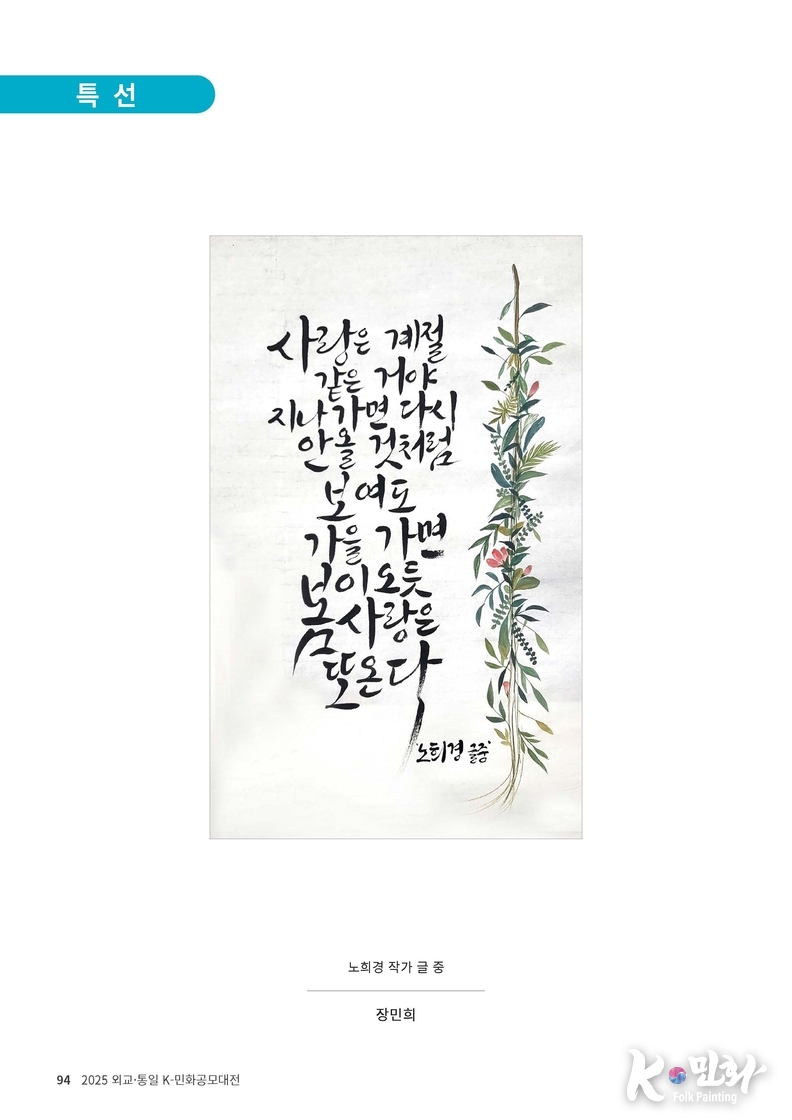 특 선
사랑은 계절
같은 거야
지나가면 다시
안 올 것처럼
보여도
가을 가면
봄이 오듯
사랑은
또 온다
'노희경 글중'
노희경 작가 글 중
장민희
94 2025 외교·통일 K-민화공모대전
K민화
Folk Painting